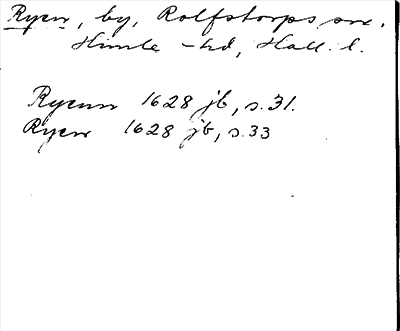 Ryen, by, Rolfstorps sn.
Himle hd, Hall. l.
Ryenn 1628 jb, s. 31.
Ryen 1628 jb, s. 33